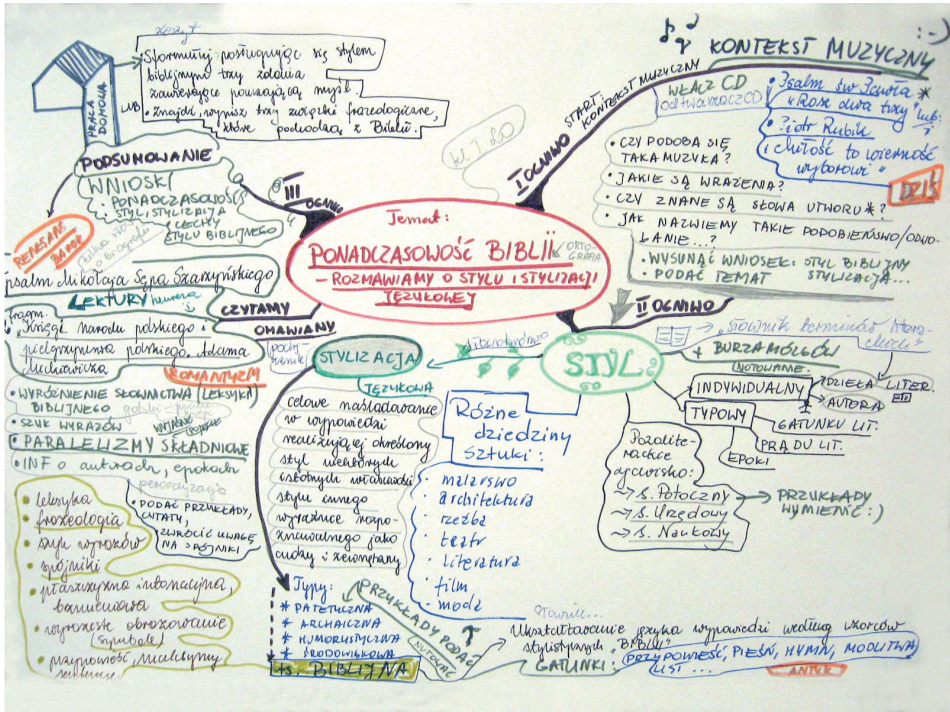 Temat:
PONADCZASOWOŚĆ BIBLII
– ROZMAWIAMY O STYLU I STYLIZACJI
JĘZYKOWEJ
ORTO-
GRAFIA
KL I LO
I OGNIWO
START: KONTEKST MUZYCZNY
KONTEKST MUZYCZNY
:-)
WŁĄCZ CD
odtwarzacz CD
• Psalm św. Pawła *
"Raz dwa trzy" lub:
• Piotr Rubik
"Miłość to wierność
wyborowi"
DZIŚ
• CZY PODOBA SIĘ
TAKA MUZYKA?
• JAKIE SĄ WRAŻENIA?
• CZY ZNANE SĄ SŁOWA UTWORU*?
• JAK NAZWIEMY TAKIE PODOBIEŃSWO/ODWO-
ŁANIE...?
• WYSUNĄĆ WNIOSEK: STYL BIBLIJNY
• PODAĆ TEMAT STYLIZACJA...
II OGNIWO
STYL
"Słownik terminów literackich"
+ BURZA MÓZGÓW
NOTOWANIE
INDYWIDUALNY
DZIEŁA
AUTORA
LITER.
TYPOWY
GATUNKU LIT.
PRĄDU LIT.
EPOKI
Pozalite-
rackie
zjawisko:
→ s. Potoczny
→ s. Urzędowy
→ s. Naukowy
PRZYKŁADY
WYMIENIĆ :)
Różne
dziedziny
Sztuki:
• malarstwo
• architektura
• rzeźba
• teatr
• literatura
• film
• moda
STYLIZACJA
JĘZYKOWA
celowe naśladowanie
w wypowiedzi
realizującej określony
styl niektórych
istotnych właściwości
stylu innego
wyraźnie rozpo-
znawalnego jako
cudzy i zewnętrzny
Typy:
* PATETYCZNA
* ARCHAICZNA
* HUMORYSTYCZNA
* ŚRODOWISKOWA
*s. BIBLIJNA
PRZYKŁADY PODAĆ
Ukształtowanie języka wypowiedzi według wzorców
stylistycznych "BIBLII"
GATUNKI:
PRZYPOWIEŚĆ, PIEŚŃ, HYMN, MODLITWA
LIST ...
ANTYK
III OGNIWO
CZYTAMY
OMAWIAMY
LEKTURY
psalm Mikołaja Sępa Szarzyńskiego
RENESANS
BAROK
fragm.
"Księgi narodu polskiego i
pielgrzymstwa polskiego" Adama
Mickiewicza
ROMANTYZM
• WYRÓŻNIENIE SŁOWNICTWA (LEKSYKI)
BIBLIJNEGO
• SZYK WYRAZÓW
• PARALELIZMY SKŁADNIOWE
• INF o autorach, epokach
periodyzacja
• PODAĆ PRZYKŁADY,
CYTATY,
ZWRÓCIĆ UWAGĘ
NA SPÓJNIKI
• leksyka
• frazeologia
• szyk wyrazów
• spójniki
• płaszczyzna intonacyjna,
brzmieniowa
• wyraziste obrazowanie
(symbole)
PODSUMOWANIE
WNIOSKI
• PONADCZASOWOŚĆ
• STYL, STYLIZACJA
• CECHY
STYLU BIBLIJNEGO
PRACA
DOMOWA
zeszyt
• Sformułuj posługując się stylem
biblijnym trzy zdania
zawierające pouczającą myśl.
LUB
• Znajdź, wypisz trzy związki frazeologiczne,
które pochodzą z Biblii.